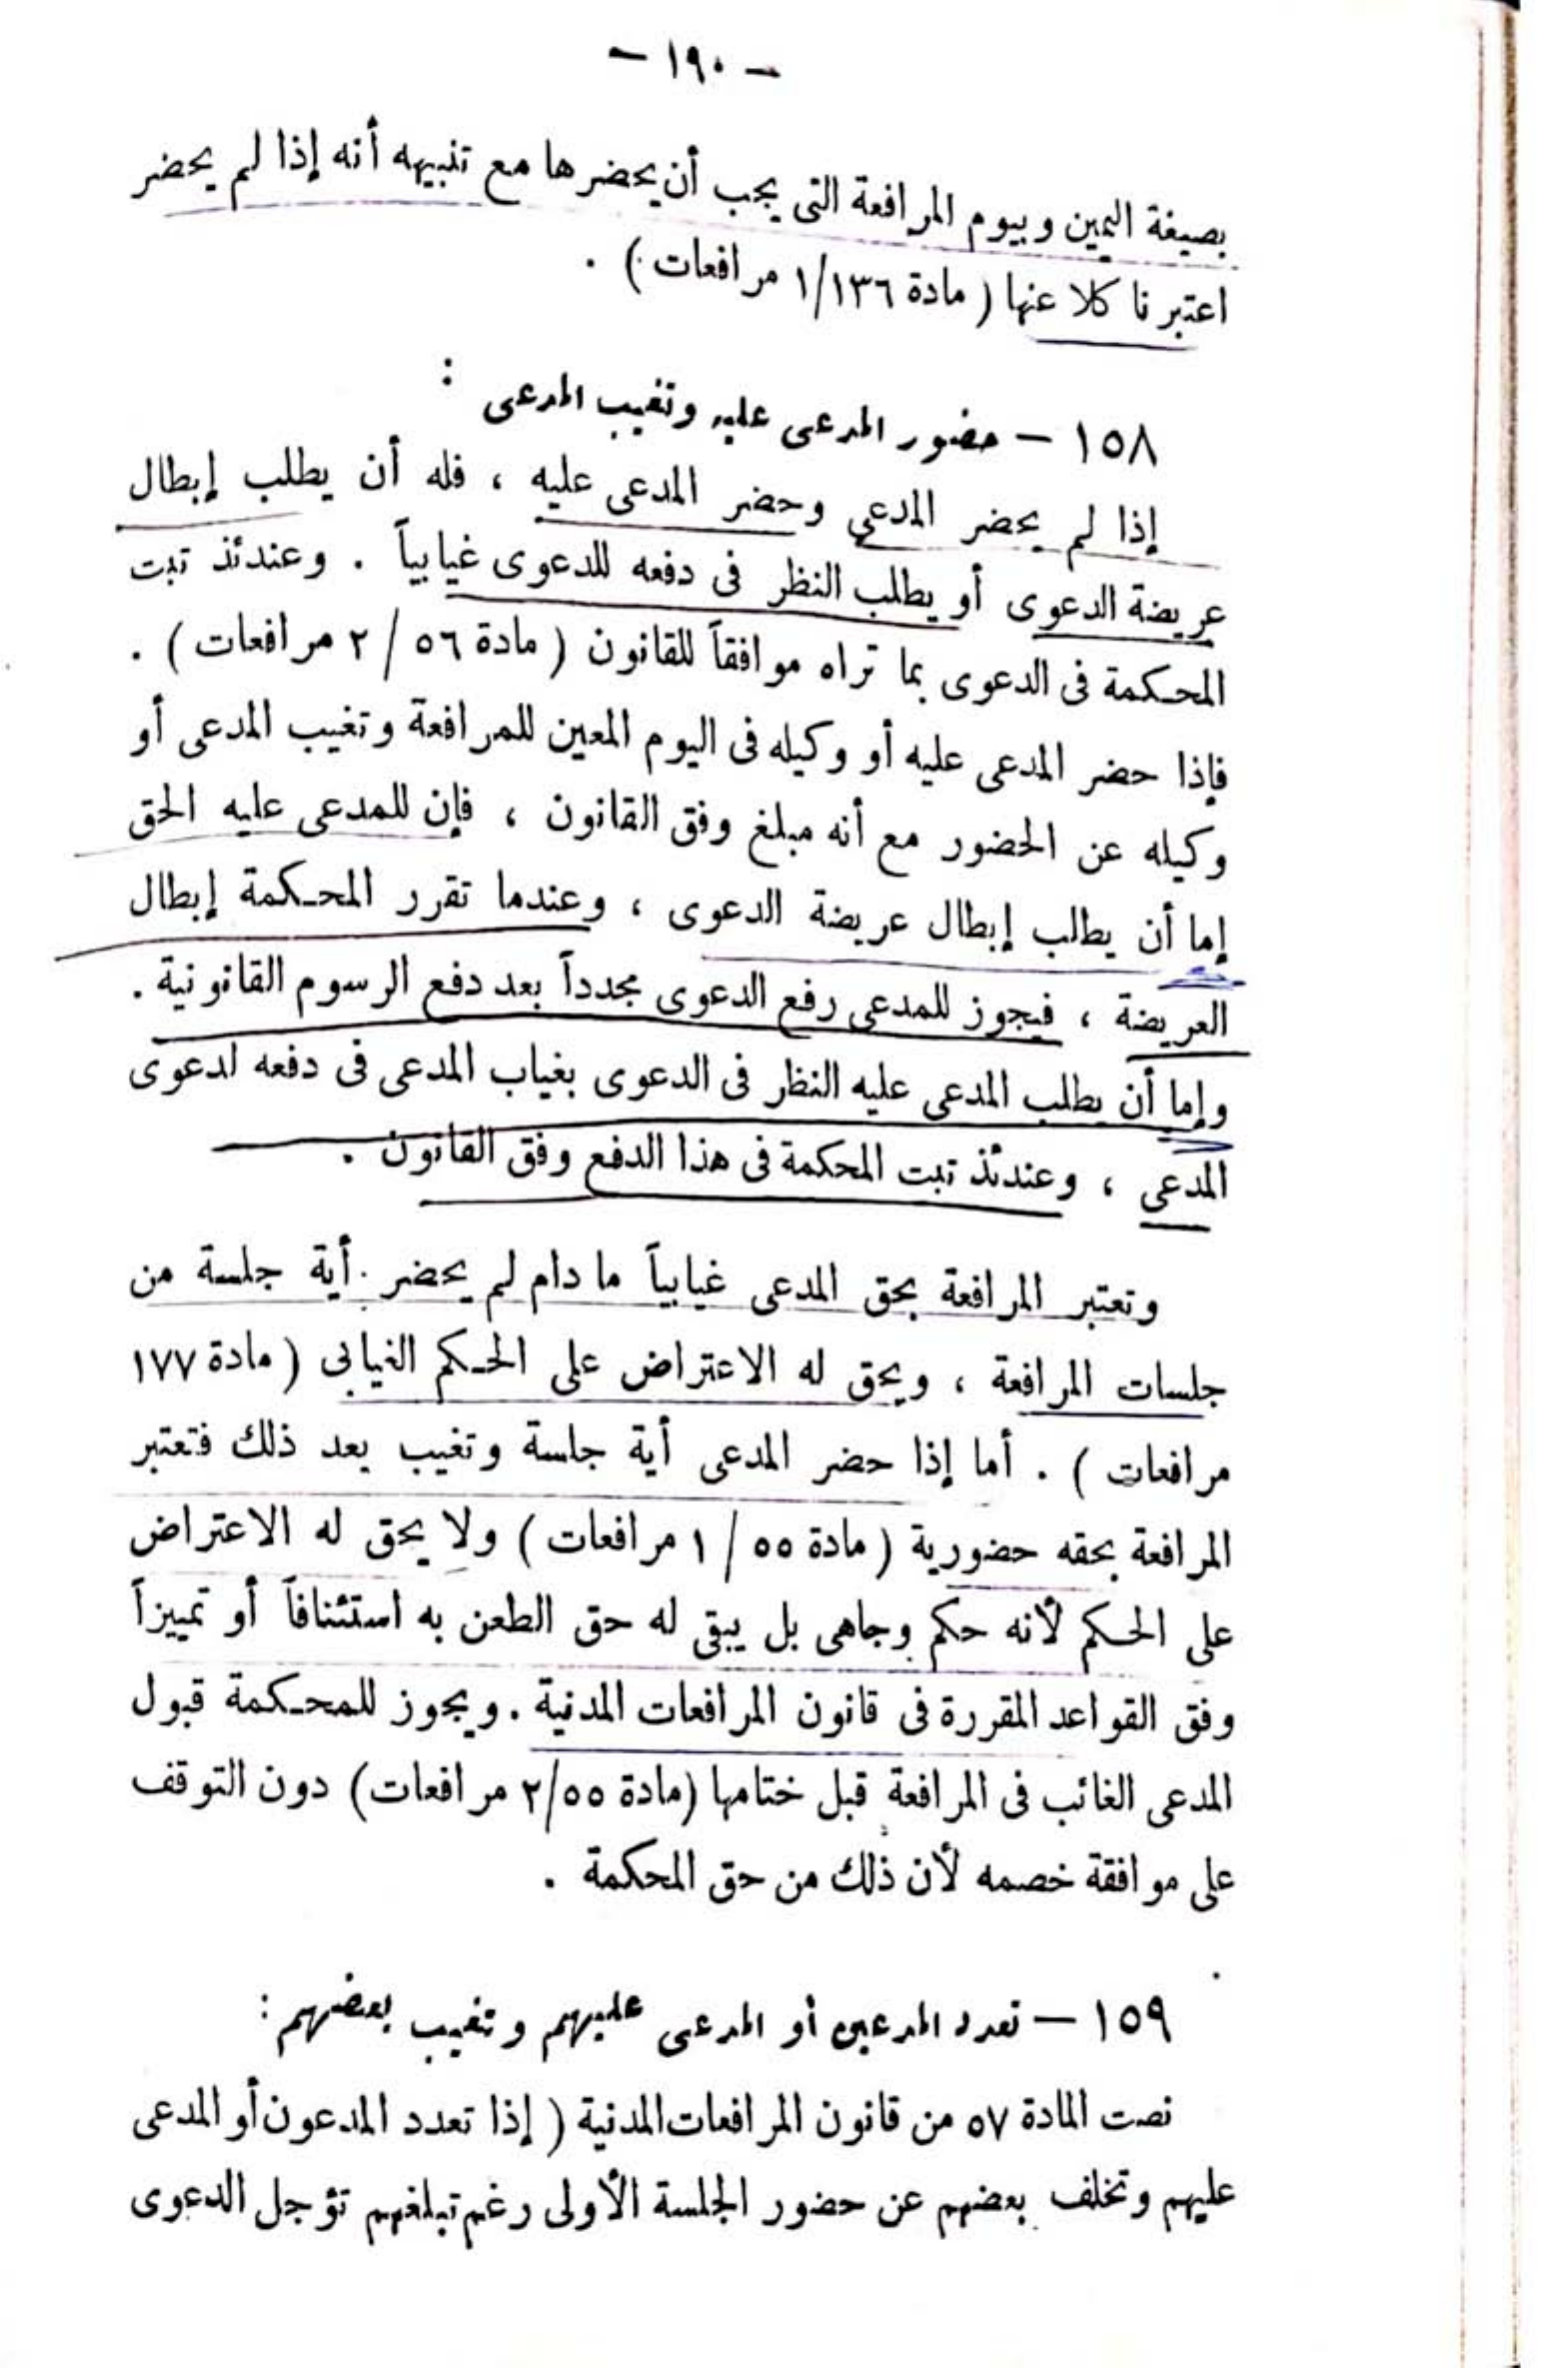 - ١٩٠ -
بصيغة اليمين وبيوم المرافعة التى يجب أن يحضرها مع تنبيهه أنه إذا لم يحضر
اعتبر ناكلا عنها ( مادة ١/١٣٦ مرافعات ) .
١٥٨ - حضور المدعى عليه وتغيب المدعى :
إذا لم يحضر المدعى وحضر المدعى عليه ، فله أن يطلب إبطال
عريضة الدعوى أو يطلب النظر فى دفعه للدعوى غيابياً . وعندئذ تبت
المحكمة فى الدعوى بما تراه موافقاً للقانون ( مادة ٥٦ / ٢ مرافعات ) .
فإذا حضر المدعى عليه أو وكيله فى اليوم المعين للمرافعة وتغيب المدعى أو
وكيله عن الحضور مع أنه مبلغ وفق القانون ، فإن للمدعى عليه الحق
إما أن يطلب إبطال عريضة الدعوى ، وعندما تقرر المحكمة إبطال
العريضة ، فيجوز للمدعى رفع الدعوى مجدداً بعد دفع الرسوم القانونية .
وإما أن يطلب المدعى عليه النظر فى الدعوى بغياب المدعى فى دفعه لدعوى
المدعى ، وعندئذ تبت المحكمة فى هذا الدفع وفق القانون .
وتعتبر المرافعة بحق المدعى غيابياً ما دام لم يحضر أية جلسة من
جلسات المرافعة ، ويحق له الاعتراض على الحكم الغيابى ( مادة ١٧٧
مرافعات ) . أما إذا حضر المدعى أية جلسة وتغيب بعد ذلك فتعتبر
المرافعة بحقه حضورية ( مادة ٥٥ / ١ مرافعات ) ولا يحق له الاعتراض
على الحكم لأنه حكم وجاهى بل يبقى له حق الطعن به استئنافاً أو تمييزاً
وفق القواعد المقررة فى قانون المرافعات المدنية . ويجوز للمحكمة قبول
المدعى الغائب فى المرافعة قبل ختامها (مادة ٢/٥٥ مرافعات) دون التوقف
على موافقة خصمه لأن ذلك من حق المحكمة .
١٥٩ - تعدد المدعين أو المدعى عليهم وتغيب بعضهم :
نصت المادة ٥٧ من قانون المرافعات المدنية ( إذا تعدد المدعون أو المدعى
عليهم وتخلف بعضهم عن حضور الجلسة الأولى رغم تبلغهم تؤجل الدعوى